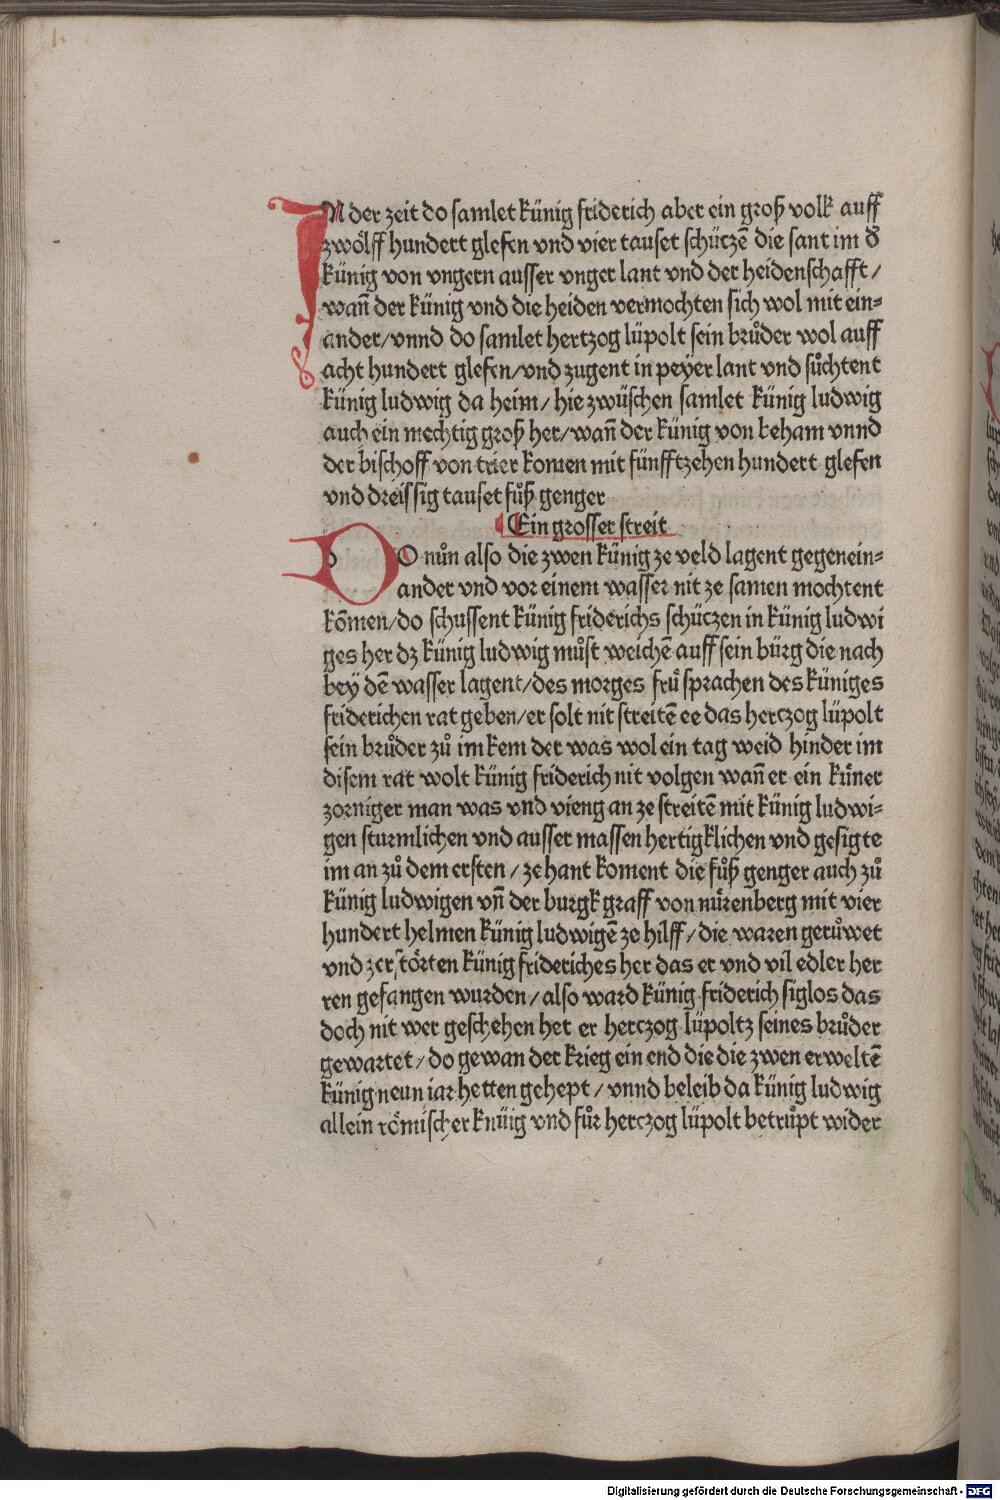 IN der zeit do samlet künig friderich aber ein groß volk auff
zwölff hundert glefen vnd vier tauset schüczē die sant im d̕
künig von vngern ausser vnger lant vnd der heidenschafft/
wañ der künig vnd die heiden vermochten sich wol mit ein=
ander/vnnd do samlet hertzog lüpolt sein brůder wol auff
acht hundert glefen/vnd zugent in peyer lant vnd sůchtent
künig ludwig da heim/hie zwüschen samlet künig ludwig
auch ein mechtig groß her/wañ der künig von beham vnnd
der bischoff von trier komen mit fünfftzehen hundert glefen
vnd dreissig tauset fůß genger
Ein grosser streit
DO nůn also die zwen künig ze veld lagent gegenein=
ander vnd vor einem wasser nit ze samen mochtent
kōmen/do schussent künig friderichs schüczen in künig ludwi
ges her dz künig ludwig můst weichē auff sein bürg die nach
bey dē wasser lagent/des morges frů sprachen des küniges
friderichen rat geben/er solt nit streitē ee das herczog lüpolt
sein brůder zů im kem der was wol ein tag weid hinder im
disem rat wolt künig friderich nit volgen wañ er ein kůner
zorniger man was vnd vieng an ze streitē mit künig ludwi=
gen sturmlichen vnd ausser massen hertigklichen vnd gesigte
im an zů dem ersten/ze hant koment die fůß genger auch zů
künig ludwigen vñ der burgk graff von nürenberg mit vier
hundert helmen künig ludwigē ze hilff/die waren gerůwet
vnd zerstörten künig frideriches her das er vnd vil edler her
ren gefangen wurden/also ward künig friderich siglos das
doch nit wer geschehen het er herczog lüpoltz seines brůder
gewartet/do gewan der krieg ein end die die zwen erweltē
künig neun iar hetten gehept/vnnd beleib da künig ludwig
allein römischer knüig vnd fůr herczog lüpolt betrůpt wider
Digitalisierung gefördert durch die Deutsche Forschungsgemeinschaft - DFG